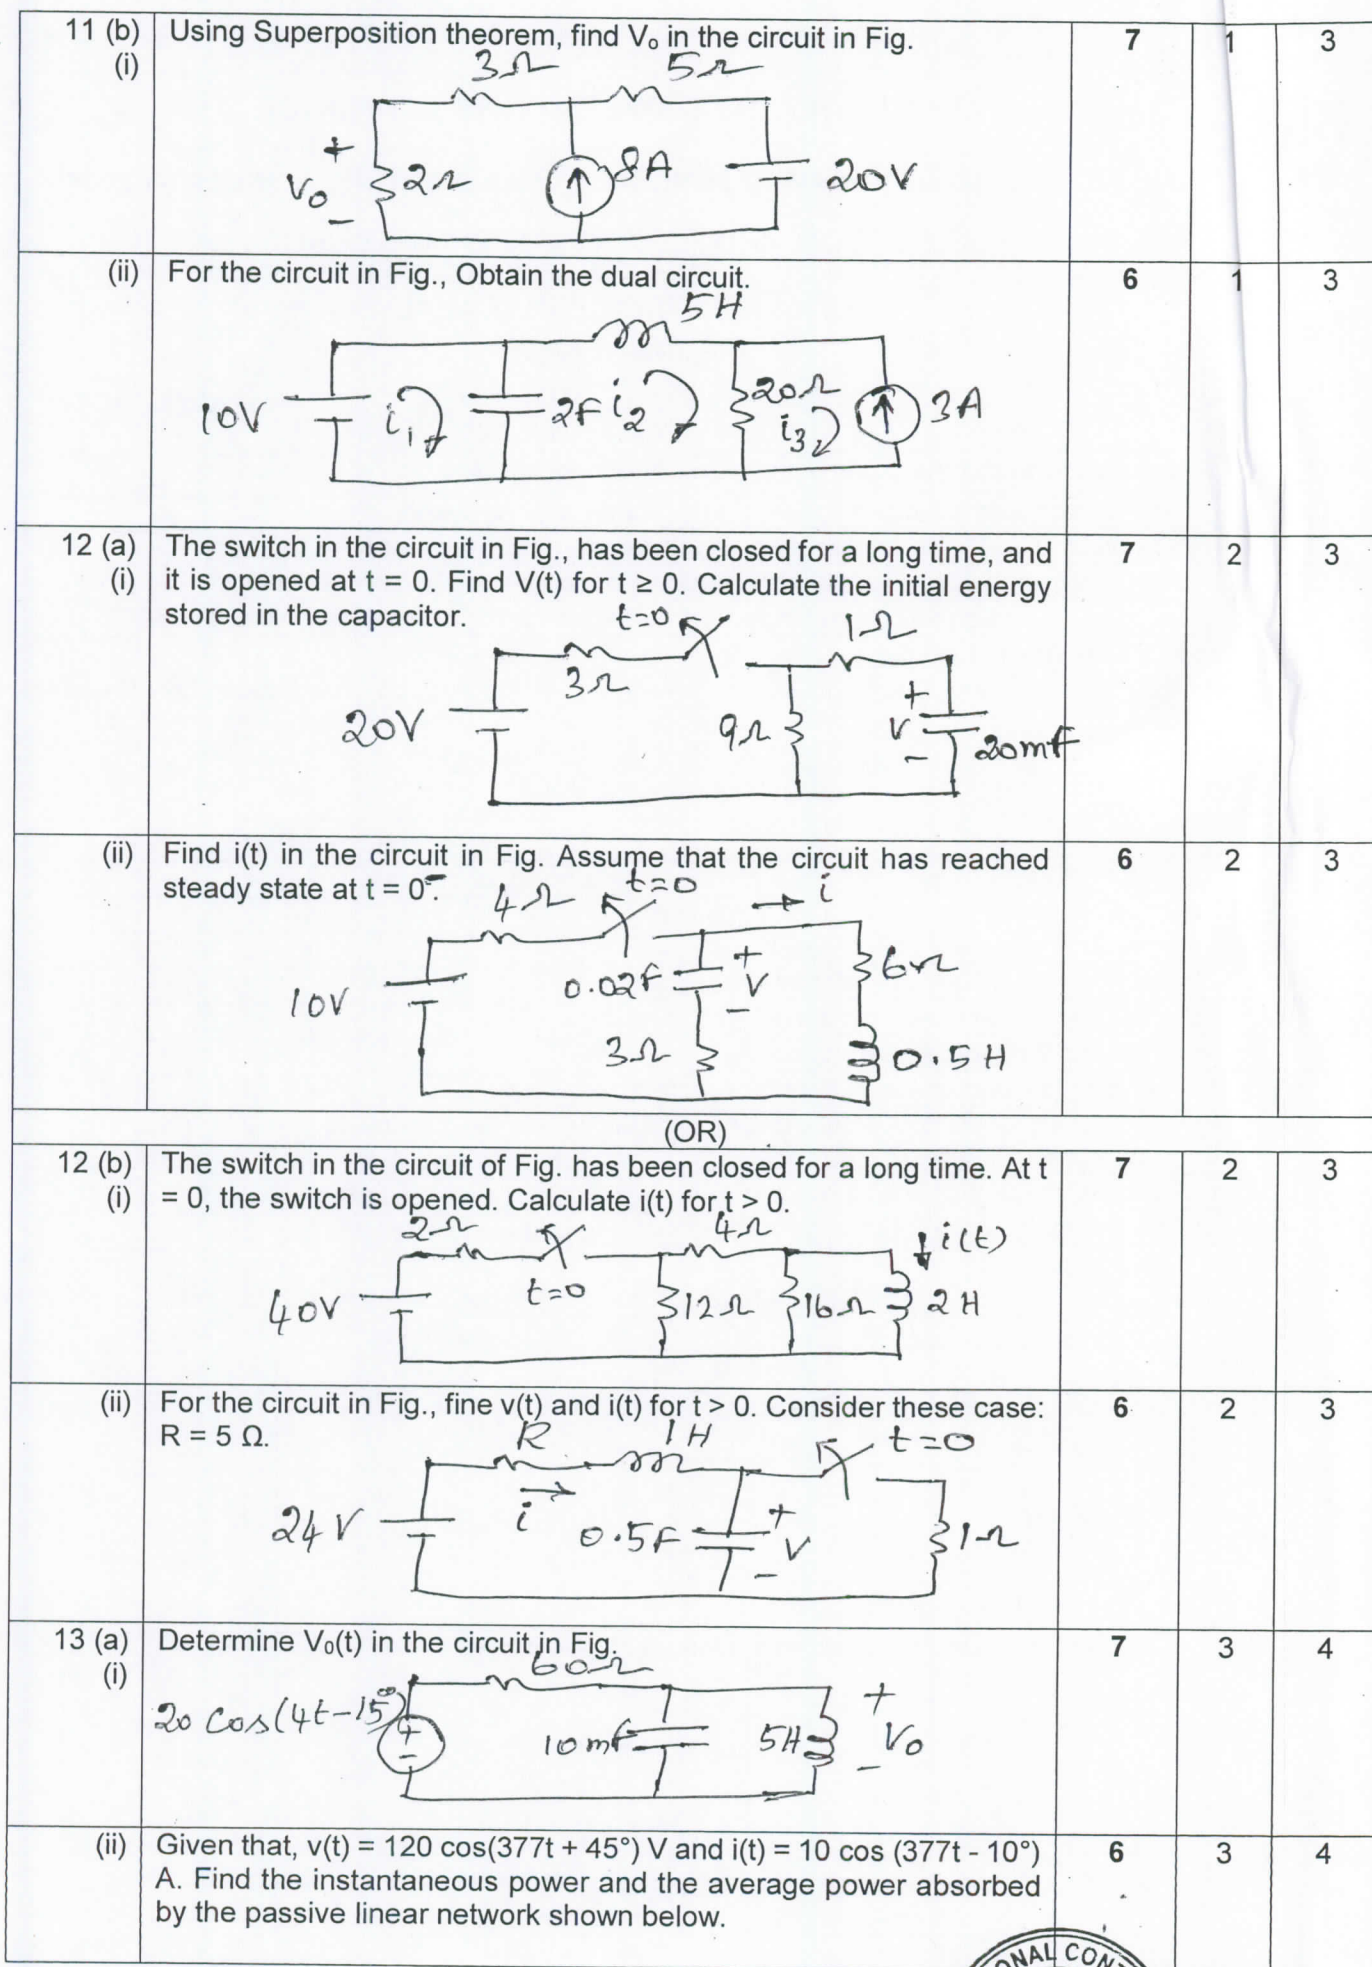 11 (b) Using Superposition theorem, find Vₒ in the circuit in Fig. 7 1 3
(i)
3Ω 5Ω
+
Vo 2Ω 8A 20V
−
(ii) For the circuit in Fig., Obtain the dual circuit. 6 1 3
5H
10V i1 2F i2 20Ω i3 3A
12 (a) The switch in the circuit in Fig., has been closed for a long time, and 7 2 3
(i) it is opened at t = 0. Find V(t) for t ≥ 0. Calculate the initial energy
stored in the capacitor.
t=0 1Ω
3Ω
20V 9Ω + V − 20mF
(ii) Find i(t) in the circuit in Fig. Assume that the circuit has reached 6 2 3
steady state at t = 0⁻.
4Ω t=0 i
10V 0.02F + V − 6Ω
3Ω 0.5H
(OR)
12 (b) The switch in the circuit of Fig. has been closed for a long time. At t 7 2 3
(i) = 0, the switch is opened. Calculate i(t) for t > 0.
2Ω 4Ω i(t)
t=0
40V 12Ω 16Ω 2H
(ii) For the circuit in Fig., fine v(t) and i(t) for t > 0. Consider these case: 6 2 3
R = 5 Ω.
R 1H t=0
24V i 0.5F + V − 1Ω
13 (a) Determine V₀(t) in the circuit in Fig. 7 3 4
(i)
60Ω
20 cos(4t−15°) + − 10mF 5H + Vo −
(ii) Given that, v(t) = 120 cos(377t + 45°) V and i(t) = 10 cos (377t - 10°) 6 3 4
A. Find the instantaneous power and the average power absorbed
by the passive linear network shown below.